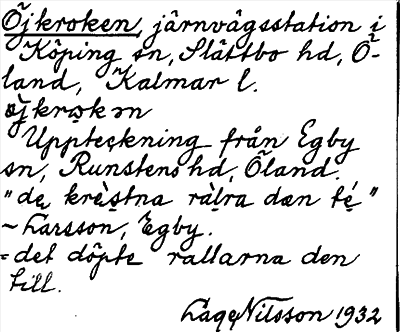 Öjkroken, järnvägsstation i
Köping sn, Slättbo hd, Ö-
land, Kalmar l.
Uppteckning från Egby
sn, Runstens hd, Öland.
"de krèstna ràlra dæn té"
~ Larsson, Egby.
= det döpte rallarna den
till.
Låge Nilsson 1932